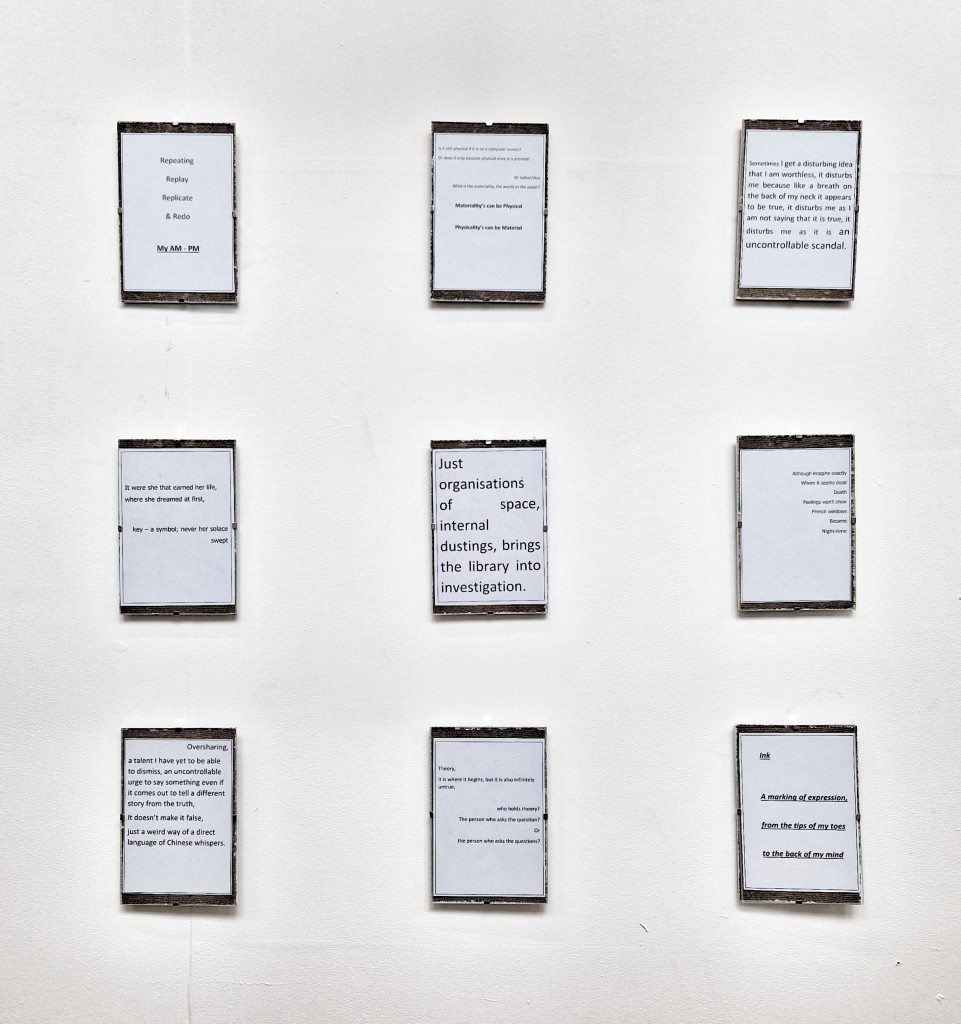 Repeating
Replay
Replicate
& Redo
My AM - PM
Is it still physical if it is on a computer screen?
Or does it only become physical once it is printed?
Or rather/also
What is the materiality, the words or the paper?
Materiality's can be Physical
Physicality's can be Material
Sometimes I get a disturbing idea
that I am worthless, it disturbs
me because like a breath on
the back of my neck it appears
to be true, it disturbs me as I
am not saying that it is true, it
disturbs me as it is an
uncontrollable scandal.
It were she that earned her life,
where she dreamed at first,
key – a symbol; never her solace
swept
Just
organisations
of space,
internal
dustings, brings
the library into
investigation.
Although imagine exactly
Where it seems dead
Death
Feelings won't show
French windows
Became
Night-time
Oversharing,
a talent I have yet to be able
to dismiss, an uncontrollable
urge to say something even if
it comes out to tell a different
story from the truth,
It doesn't make it false,
just a weird way of a direct
language of Chinese whispers.
Theory,
It is where it begins, but it is also infinitely
untrue,
who holds theory?
The person who asks the question?
Or
the person who asks the questions?
Ink
A marking of expression,
from the tips of my toes
to the back of my mind